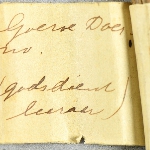 Goerse Does
no.
(godsdienst
leeraar)